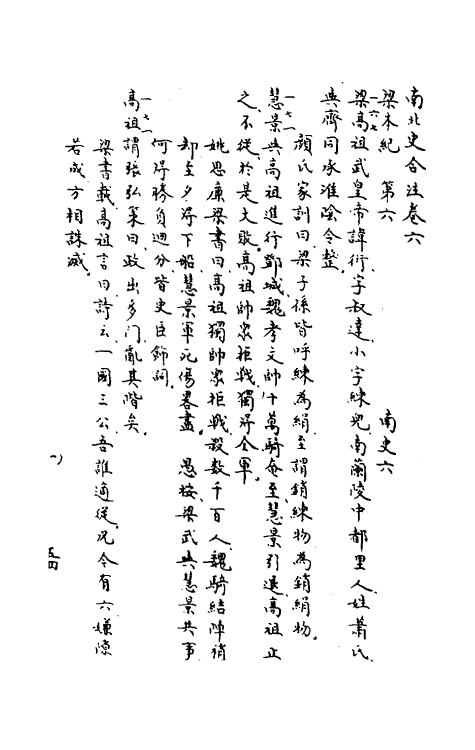 南北史合注卷六
梁本紀　第六　南史六
一六七
梁高祖武皇帝諱衍字叔達小字練兒南蘭陵中都里人姓蕭氏
與齊同承淮陰令整
顏氏家訓曰梁子孫皆呼練為絹至謂銷練物為銷絹物
一七一
慧景與高祖進行鄧城魏孝文帥十萬騎奄至慧景引退高祖止
之不從於是大敗高祖帥衆拒戰獨得全軍
姚思廉梁書曰高祖獨帥衆拒戰殺數千百人魏騎結陣稍
却至夕得下船慧景軍死傷畧盡　愚按梁武與慧景共事
何得勝負迥分皆史臣飾詞
一七一
高祖謂張弘策曰政出多门亂其階矣
梁書載高祖言曰詩云一國三公吾誰適從况今有六嫌隙
若成方相誅滅
一
五四